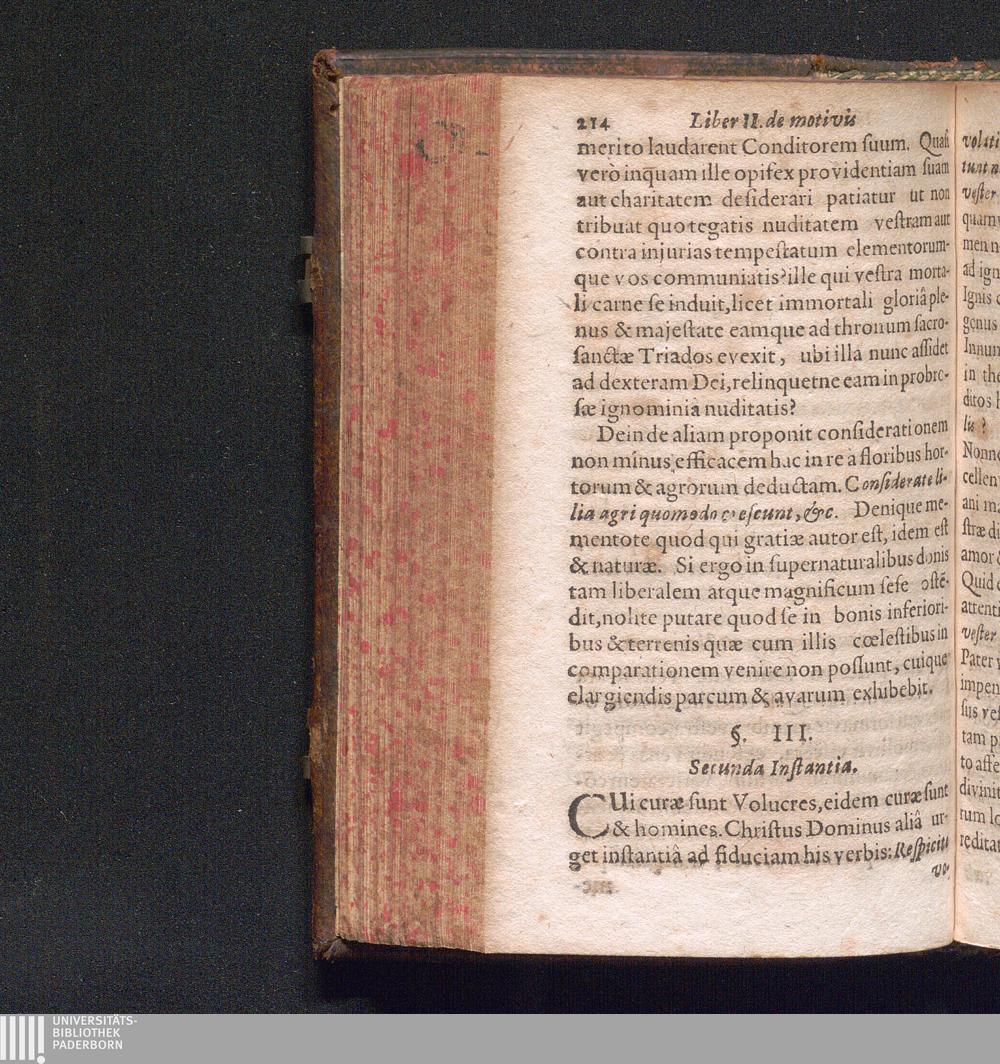 214 Liber II. de motivis
merito laudarent Conditorem ſuum. Quaſi
verò inquam ille opifex providentiam ſuam
aut charitatem deſiderari patiatur ut non
tribuat quo tegatis nuditatem veſtram aut
contra injurias tempeſtatum elementorum-
que vos communiatis? ille qui veſtra morta-
li carne ſe induit, licet immortali gloriâ ple-
nus & majeſtate eamque ad thronum ſacro-
ſanctæ Triados evexit, ubi illa nunc aſſidet
ad dexteram Dei, relinquetne eam in probro-
ſæ ignominia nuditatis?
Deinde aliam proponit conſiderationem
non minus efficacem hac in re à floribus hor-
torum & agrorum deductam. Conſiderate li-
lia agri quomodo creſcunt, &c. Denique me-
mentote quod qui gratiæ autor eſt, idem eſt
& naturæ. Si ergo in ſupernaturalibus donis
tam liberalem atque magnificum ſeſe oſtē-
dit, nolite putare quod ſe in bonis inferiori-
bus & terrenis quæ cum illis cœleſtibus in
comparationem venire non poſſunt, cuique
elargiendis parcum & avarum exhibebit.
§. III.
Secunda Inſtantia.
CUi curæ ſunt Volucres, eidem curæ ſunt
& homines. Chriſtus Dominus aliâ ur-
get inſtantiâ ad fiduciam his verbis: Reſpicite
vo-
volati
tunt n
veſter
quam
men n
ad ign
Ignis
genus
Innum
in the
ditos
lis?
Nonne
cellen
ani m
ſtræ d
amor
Quid
attenti
veſter
Pater
impen
ſus veſ
tam p
to affe
divinit
rum lo
reditat
UNIVERSITÄTS-
BIBLIOTHEK
PADERBORN